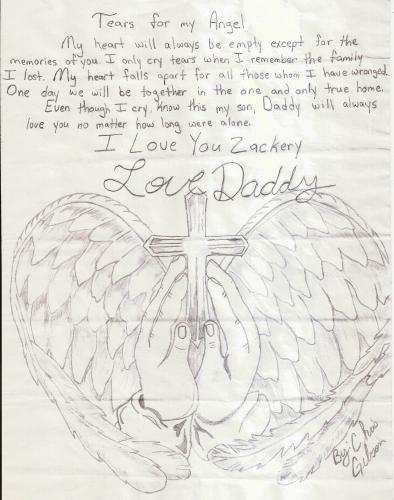 Tears for my Angel
My heart will always be empty except for the
memories of you. I only cry tears when I remember the family
I lost. My heart falls apart for all those whom I have wronged.
One day we will be together in the one and only true home.
Even though I cry, Know this my son, Daddy will always
love you no matter how long were alone.
I Love You Zackery
Love Daddy
By: Chris
Gibson